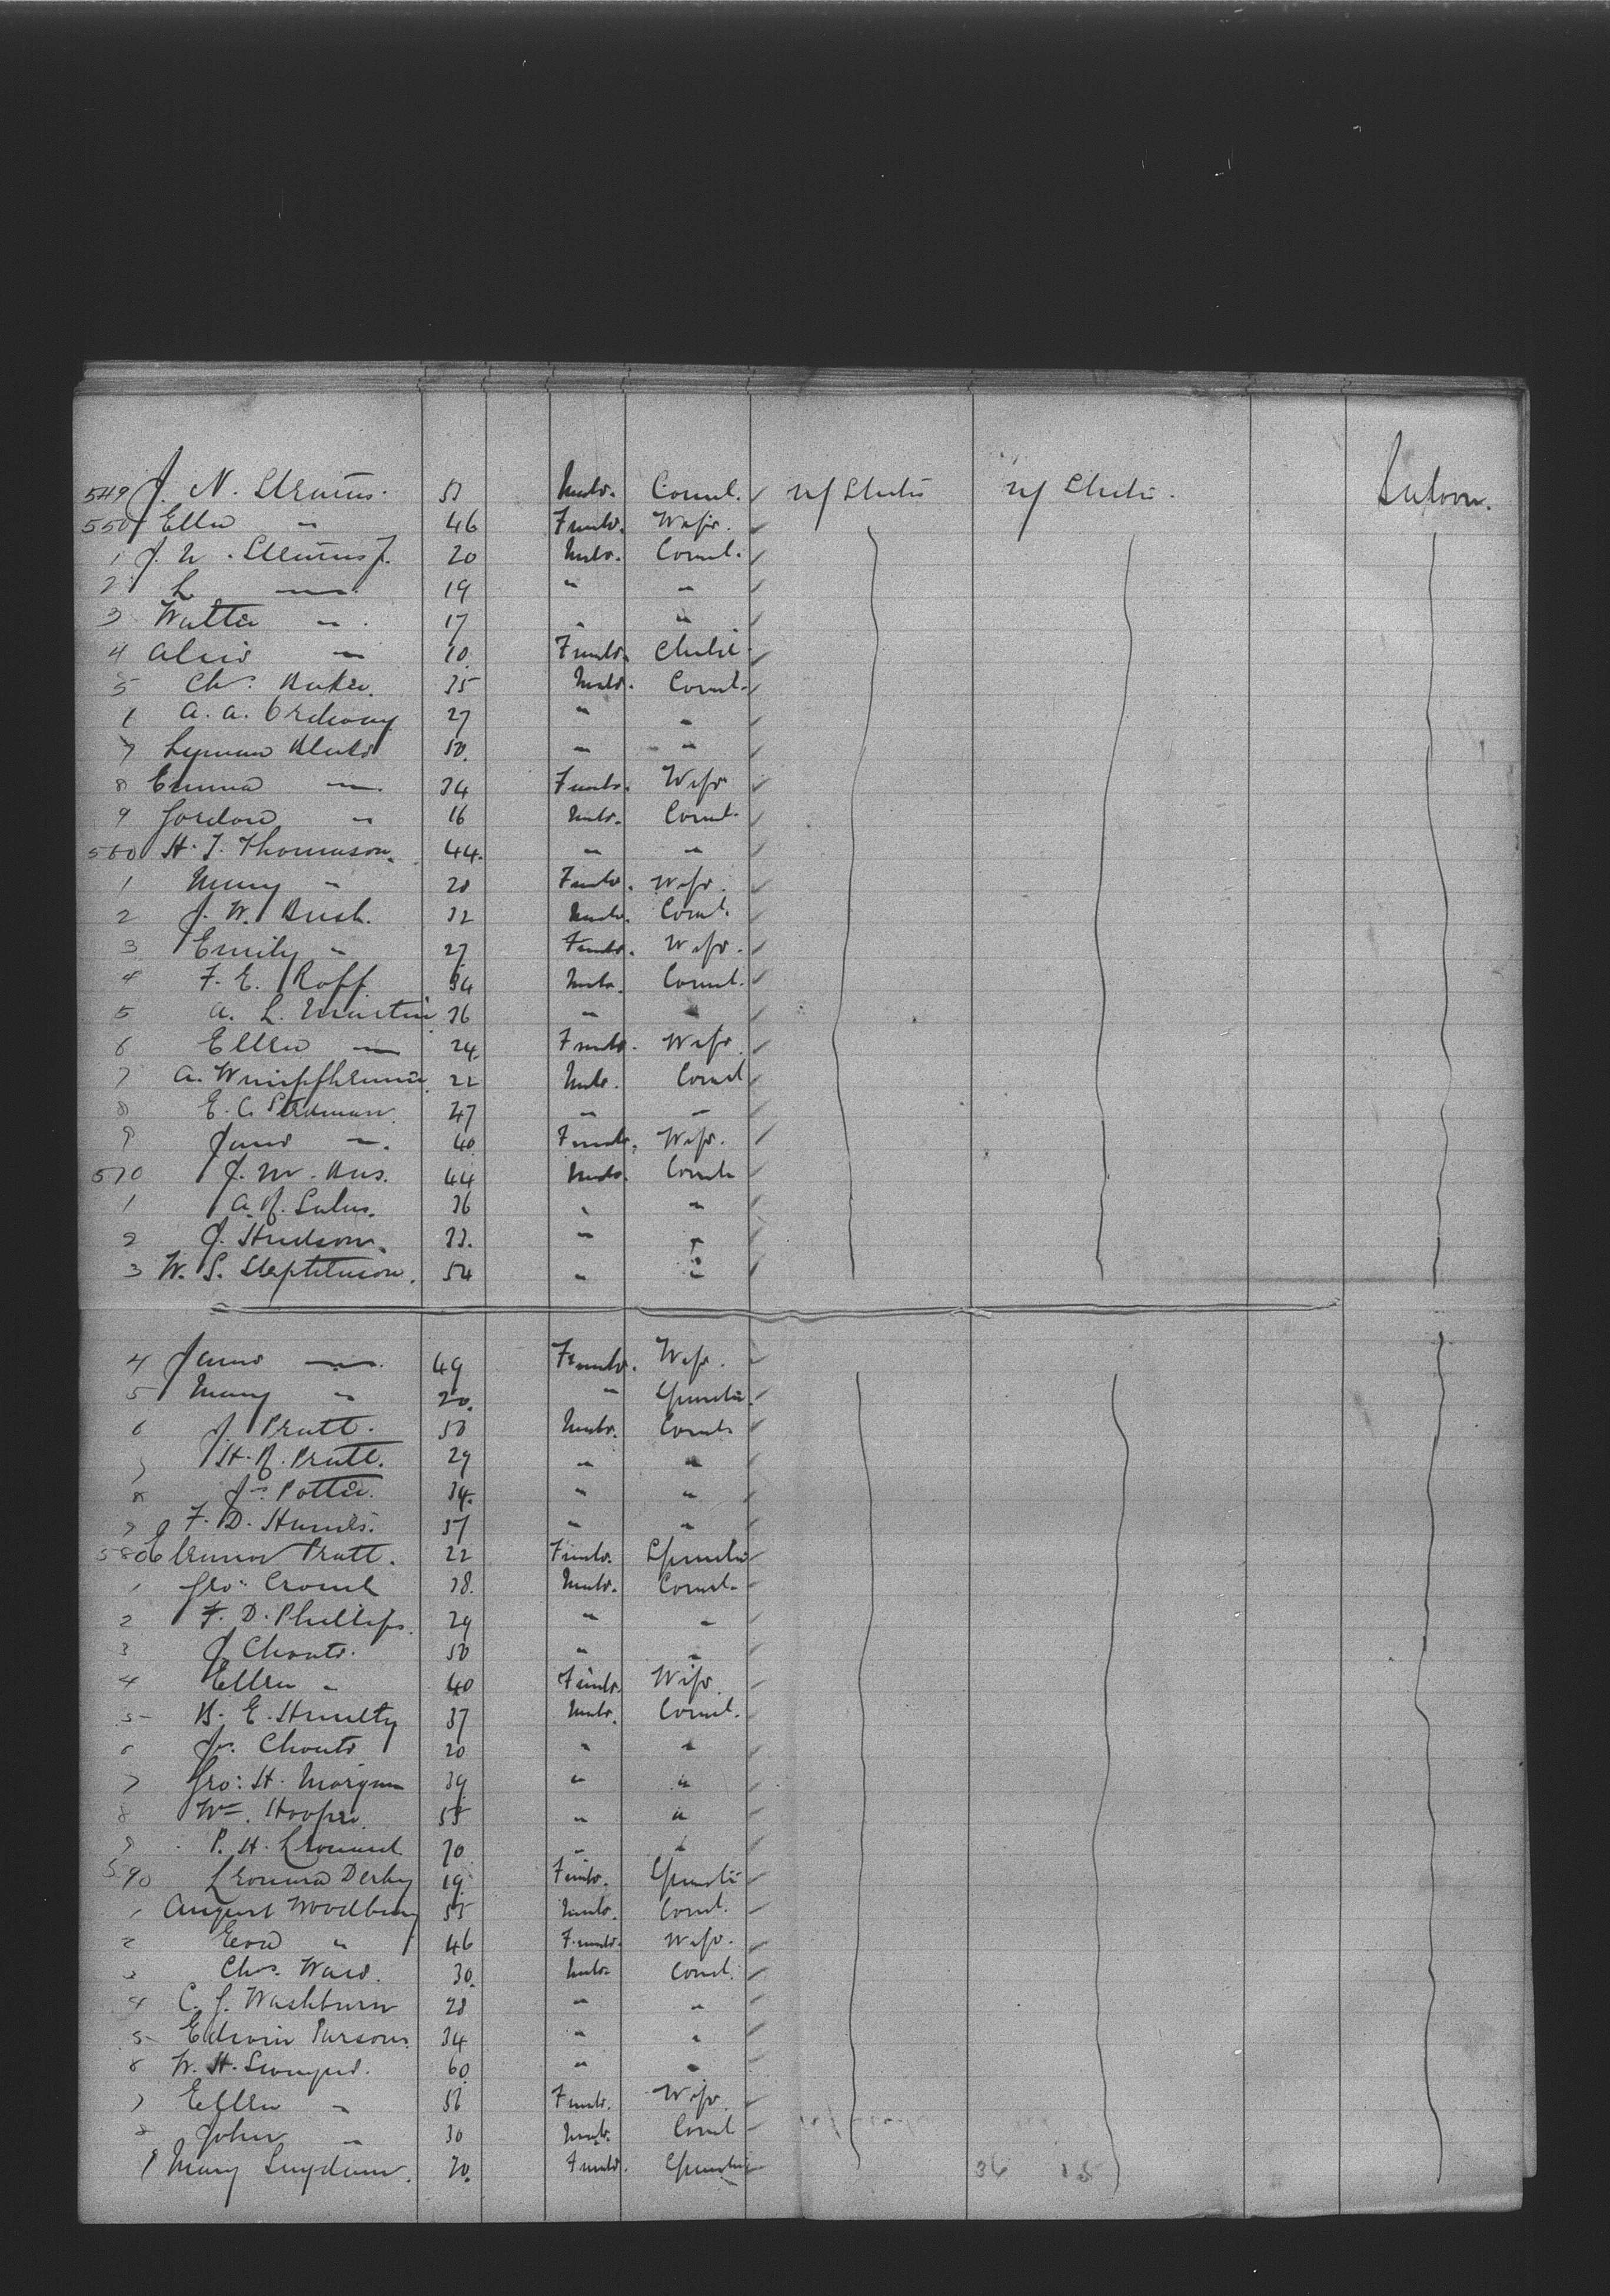 549 J. N. Stearns. 53 Male. Coml. U/States U/States. Saloon.
550 Ella " 46 Female. Wife.
1 J. N. Stearns J. 20 Male. Coml.
2 L " 19 " "
3 Walter " 17 " "
4 Alice " 10. Female Child
5 Chs. Baker. 35 Male. Coml.
6 A. A. Ordway 27 " "
7 Lyman 50. " "
8 Emma " 34 Female. Wife
9 Gordon " 16 Male. Coml.
560 H. J. Thomason. 44. " "
1 Mary " 28 Female. Wife.
2 J. W. Bush. 32 Male. Coml.
3 Emily " 27 Female. Wife.
4 F. E. Roff 34 Male. Coml.
5 A. L. Martin 36 " "
6 Ellen " 24 Female. Wife.
7 A. 22 Male. Coml
8 E. C. 47 " "
9 Jane " 40. Female. Wife.
570 J. M. 44 Male. Coml
1 A. 36 " "
2 J. Hudson. 33. " "
3 W. S. Stephenson. 54 " "
4 Jane " 49 Female. Wife.
5 Mary " 20. " Spinster.
6 J. Pratt. 50 Male. Coml
7 H. R. Pratt. 29 " "
8 Js. Potter. 34. " "
9 F. D. 37 " "
580 Eleanor Pratt. 22 Female. Spinster
1 Geo: 38. Male. Coml.
2 F. D. Phillips. 29 " "
3 J. Choate. 50 " "
4 Ellen " 40 Female. Wife.
5 B. E. 37 Male. Coml.
6 Js. Choate 20 " "
7 Geo: H. Morgan 39 " "
8 Wm. Hooper 55 " "
9 P. H. Leonard 70 " "
590 Leonora Derby 19 Female. Spinster
1 August Woodbury 55 Male. Coml.
2 " 46 Female. Wife.
3 Chs. Ward. 30. Male Coml.
4 C. J. Washburn 28 " "
5 Edwin Parsons. 34 " "
6 W. H. 60 " "
7 Ellen " 56 Female. Wife.
8 John " 30 Male. Coml
9 Mary Suydam. 70. Female. Spinster
36